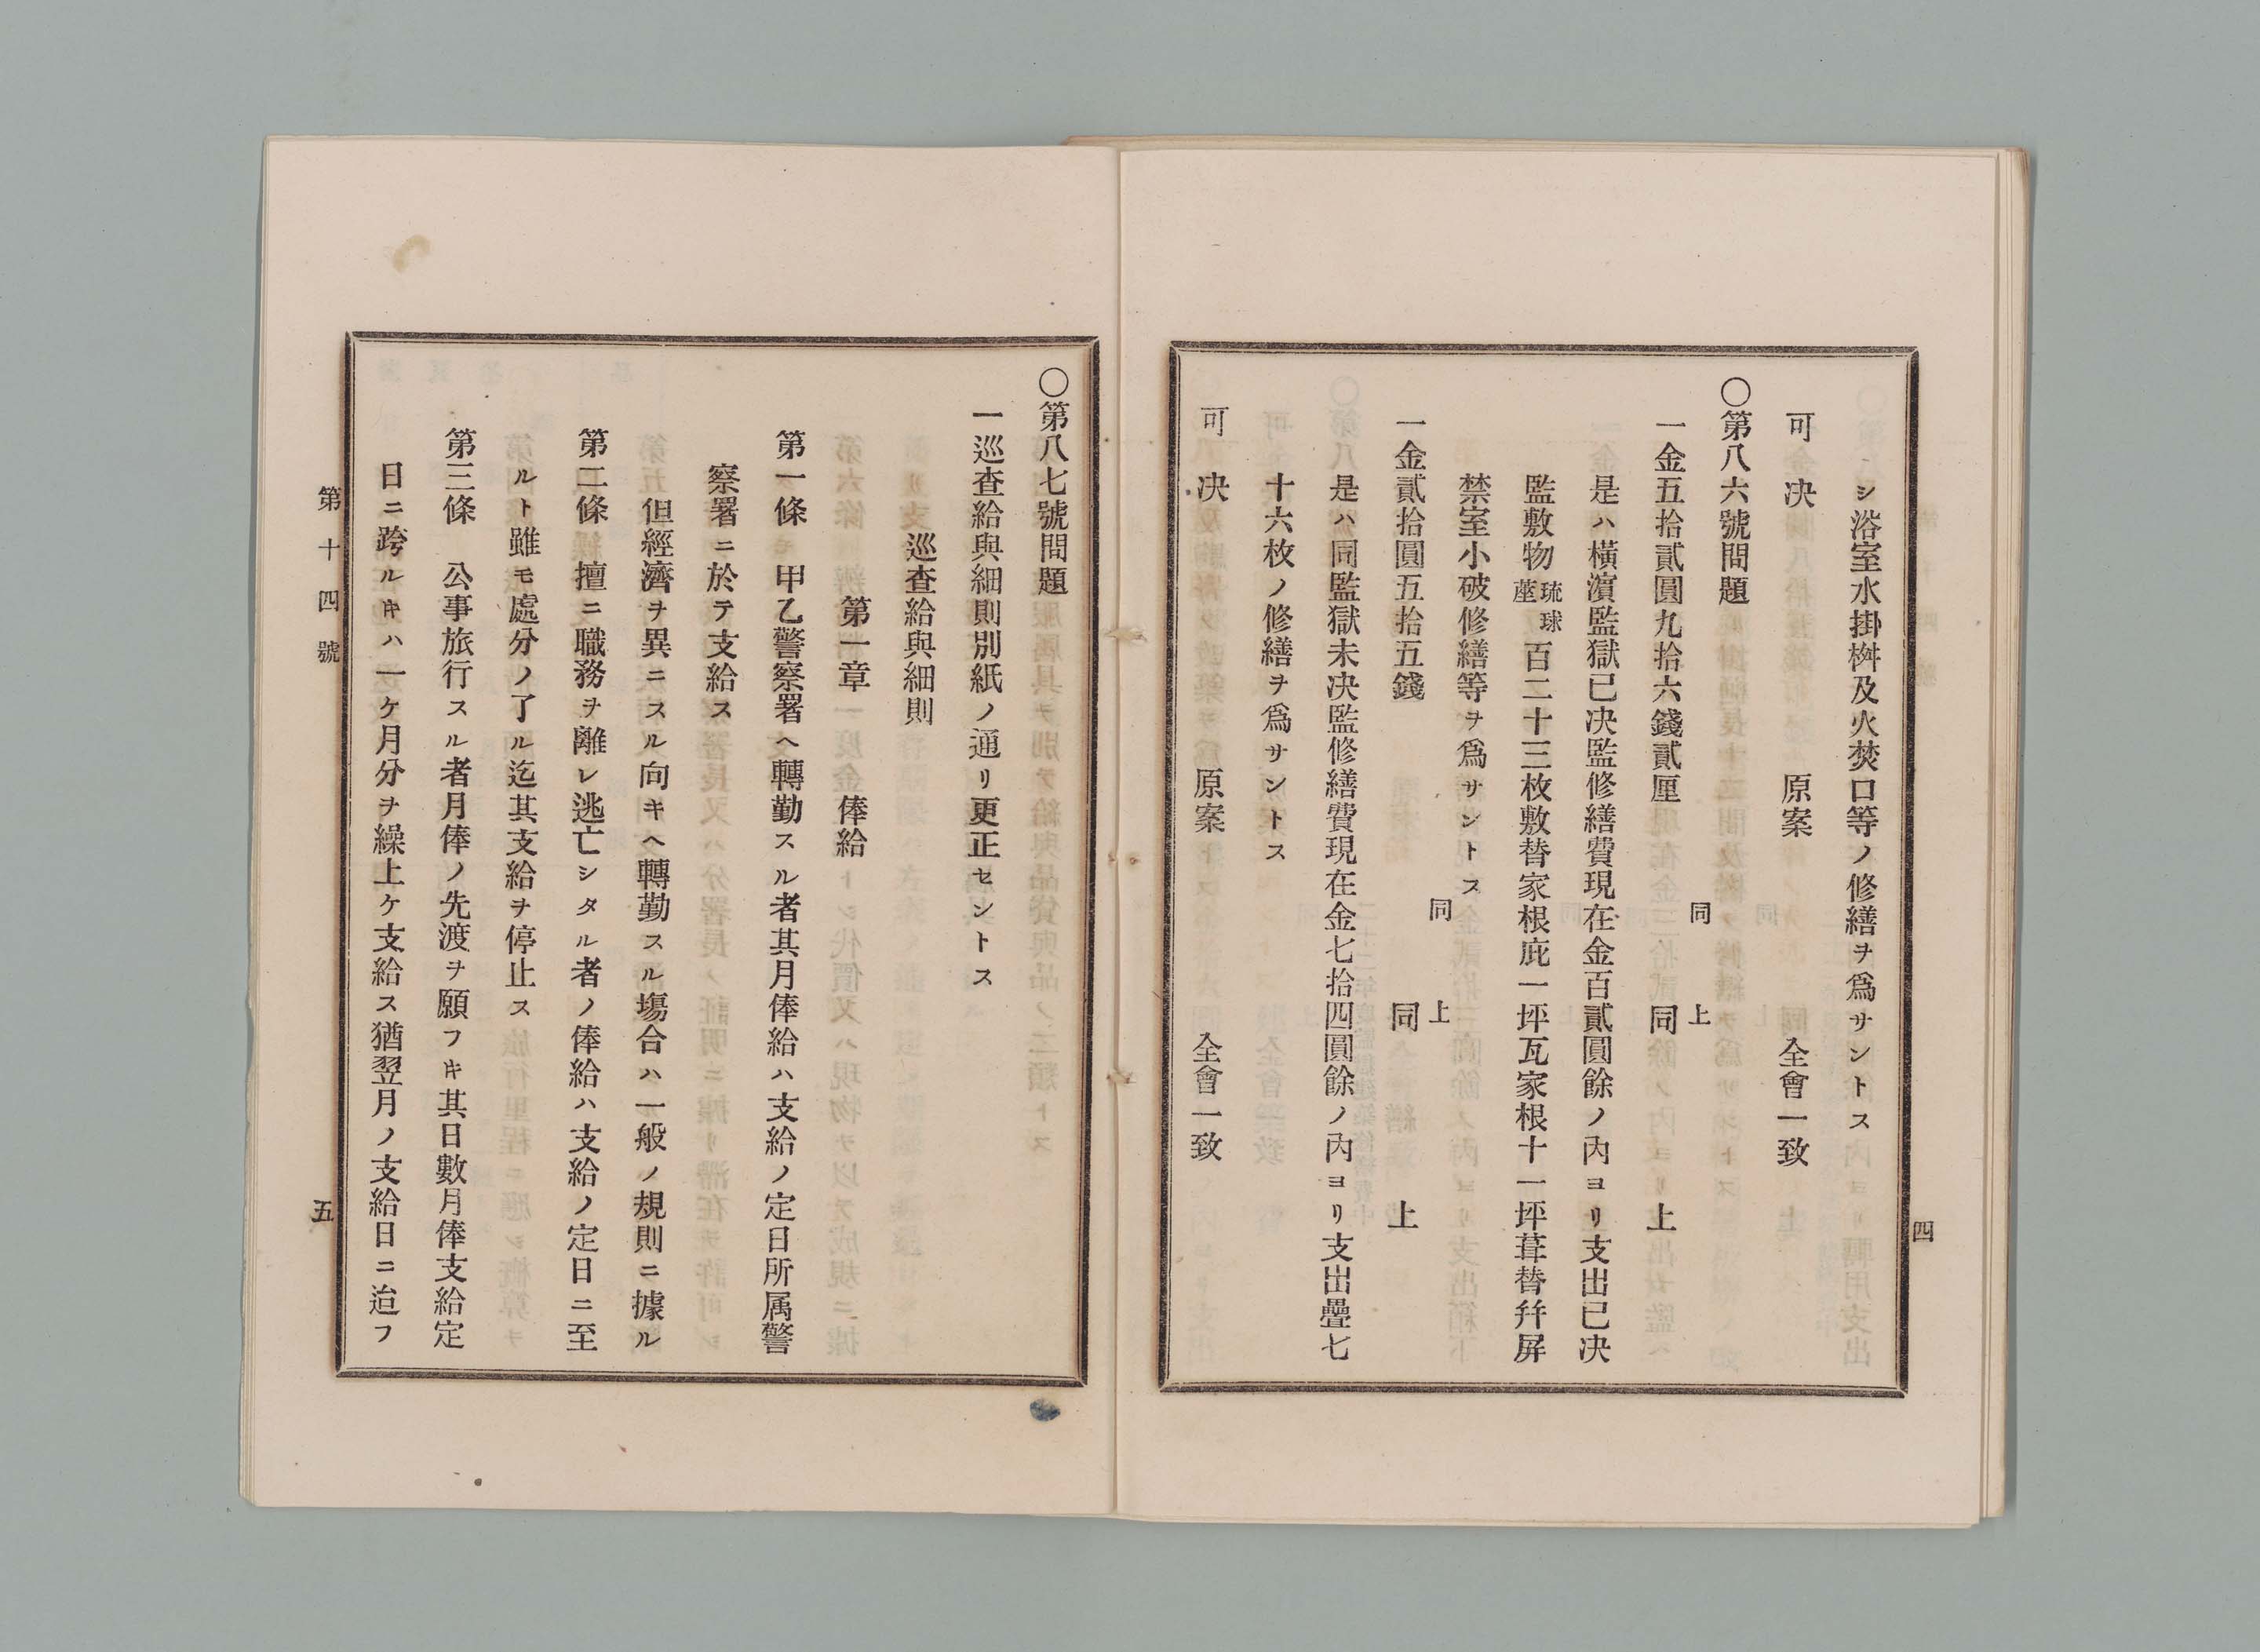 シ浴室水掛桝及火焚口等ノ修繕ヲ爲サントス
可決　原案　全會一致
〇第八六號問題
同上
一金五拾貳圓九拾六錢貳厘　同上
是ハ橫濵監獄已决監修繕費現在金百貳圓餘ノ內ヨリ支出已决
監敷物琉球莚百二十三枚敷替家根庇一坪瓦家根十一坪葺替幷屏
禁室小破修繕等ヲ爲サントス
同上
一金貳拾圓五拾五錢　同上
是ハ同監獄未决監修繕費現在金七拾四圓餘ノ內ヨリ支出疊七
十六枚ノ修繕ヲ爲サントス
可決　原案　全會一致
四
〇第八七號問題
一巡査給與細則別紙ノ通リ更正セントス
巡査給與細則
第一章　俸給
第一條　甲乙警察署ヘ轉勤スル者其月俸給ハ支給ノ定日所属警
察署ニ於テ支給ス
但經濟ヲ異ニスル向キヘ轉勤スル塲合ハ一般ノ規則ニ據ル
第二條　擅ニ職務ヲ離レ逃亡シタル者ノ俸給ハ支給ノ定日ニ至
ルト雖モ處分ノ了ル迄其支給ヲ停止ス
第三條　公事旅行スル者月俸ノ先渡ヲ願フキ其日數月俸支給定
日ニ跨ルキハ一ケ月分ヲ繰上ケ支給ス猶翌月ノ支給日ニ迨フ
第十四號
五